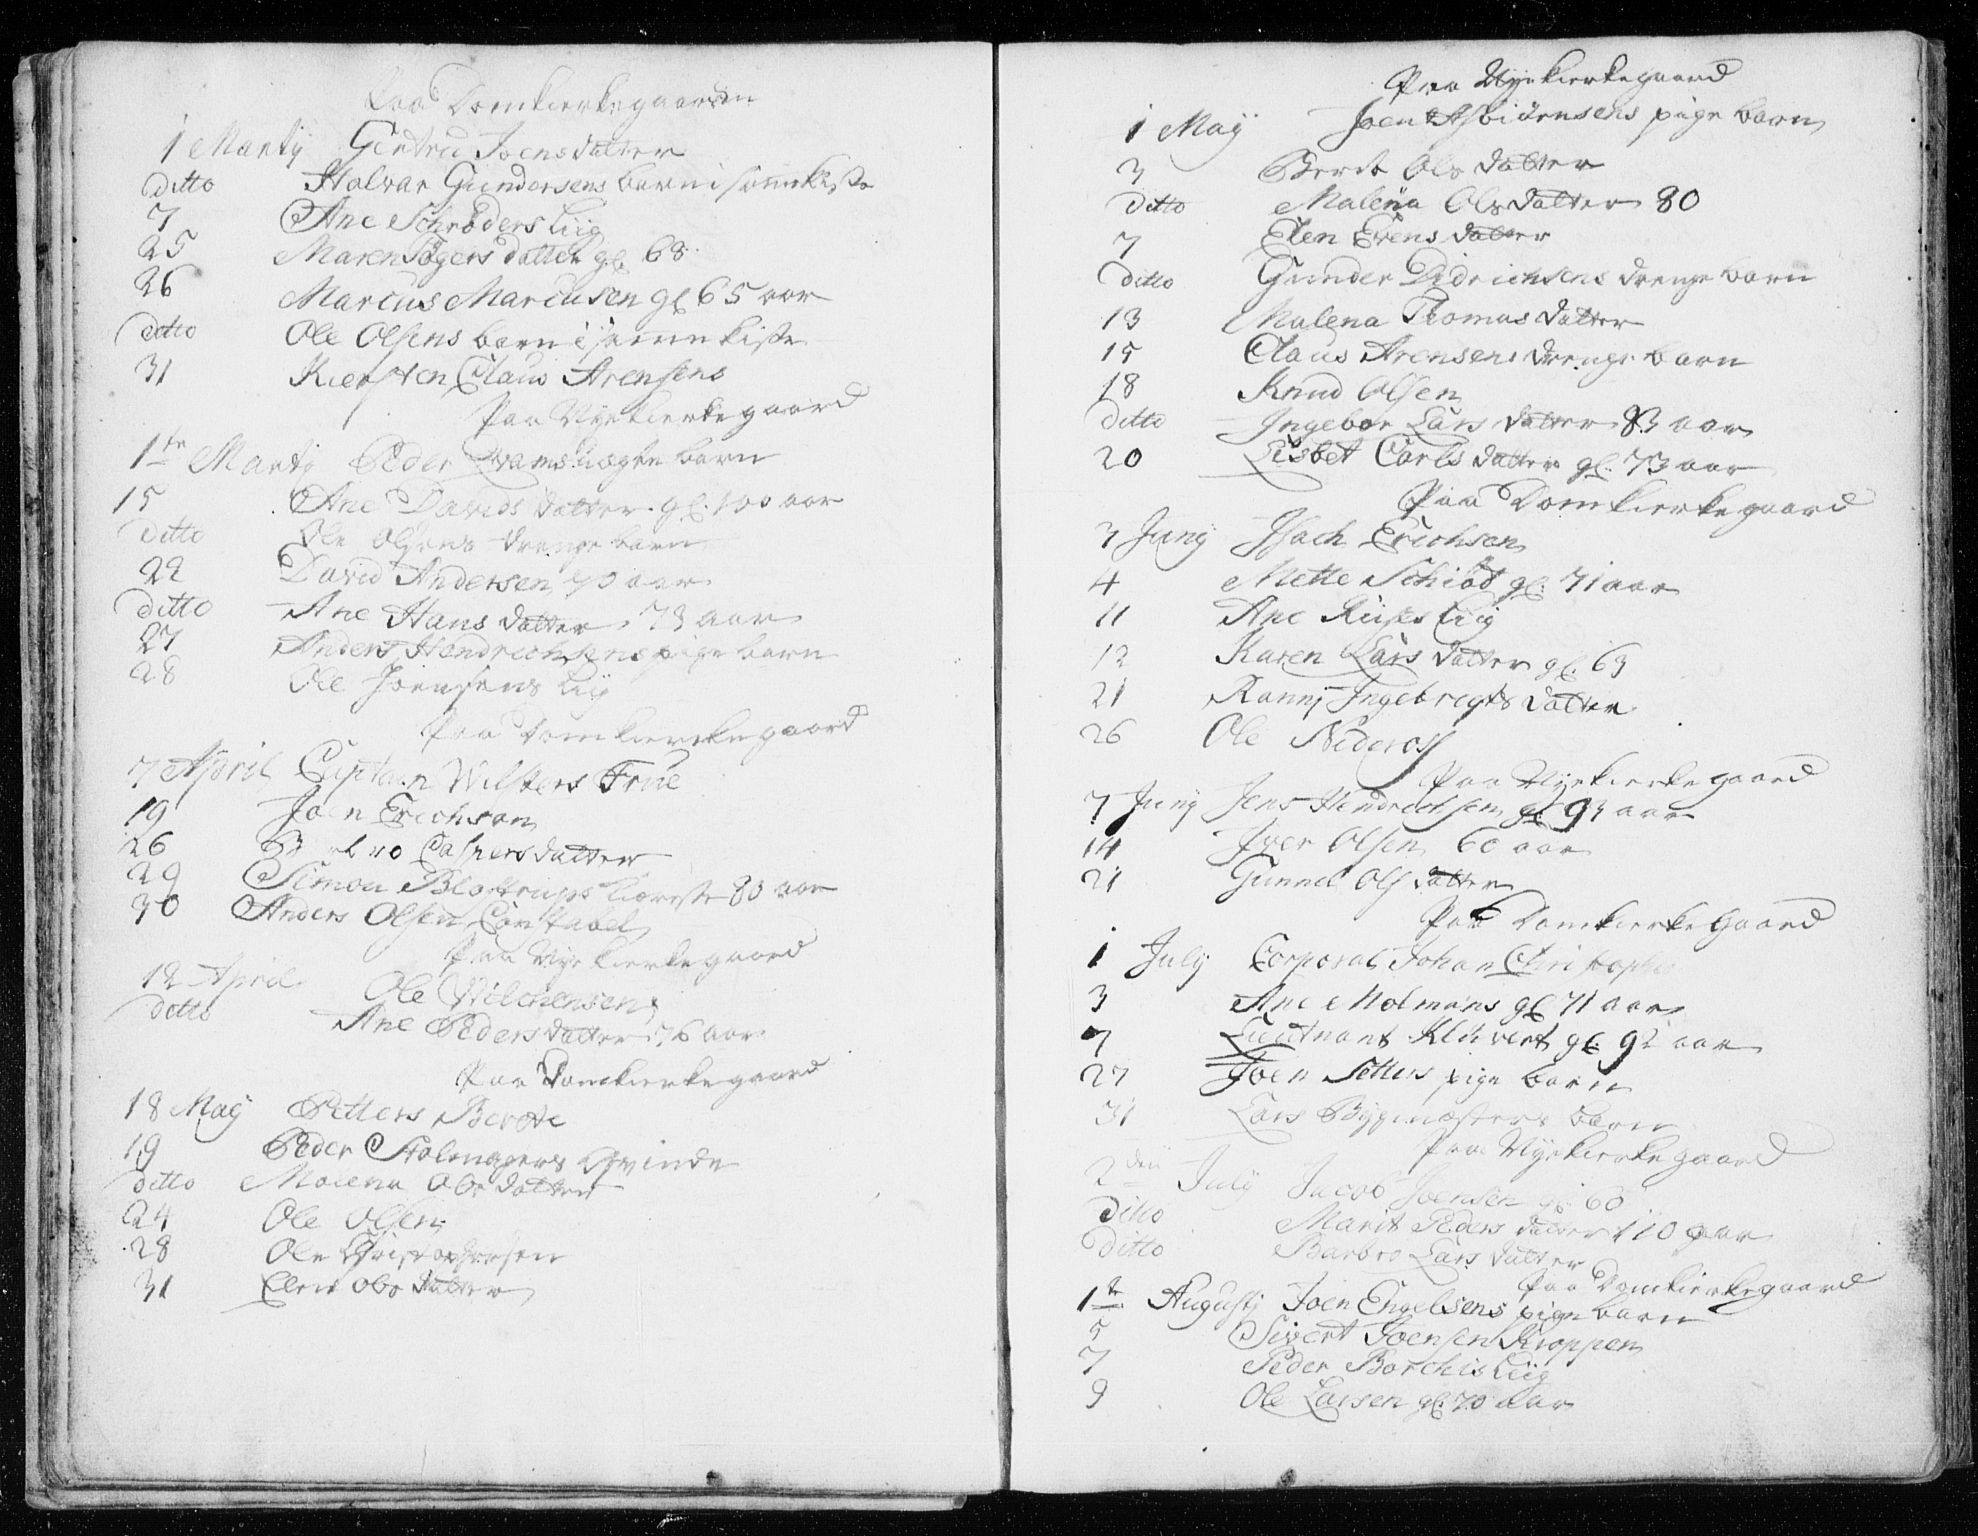 Paa Domkierkegaarden
1 Martij Gertru Joensdatter
ditto Halvar Gundersens barn i samme kiste
7 Ane Schröders Liig
25 Maren datter gl. 68
26 Marcus Marcusen gl 65 aar
ditto Ole Olsens barn i samme kiste
31 Kiersten Claus Arensens
Paa Nyekierkegaard
1te Martij Peder barn
15 Ane Davids datter gl. 100 aar
ditto Ole Olsens drenge barn
22 David Andersen 70 aar
ditto Ane Hans datter 73 aar
27 Anders Hendrichsens pige barn
28 Ole Joensens Liig
Paa Domkierckegaard
7 April Captain Wilsters Frue
19 Joen Erichsen
26 Caspersdatter
29 Simon kiæreste 80 aar
30 Anders Olsen Constabel
Paa Nyekierkegaard
12 April Ole
ditto Ane Pedersdatter 76 aar
Paa Domkierkegaard
18 Maij Petters Berete
19 Peder Qvinde
ditto Malena Ols datter
24 Ole Olsen
28 Ole Christophersen
31 Elen Ols datter
Paa Nyekierkegaard
1 Maij Joen Asbiörnsens pige barn
3 Berit Ols datter
ditto Malena Olsdatter 80
7 Elen Evens datter
ditto Gunder Didrichsens drenge barn
13 Malena Thomas datter
15 Claus Arensens drenge barn
18 Knud Olsen
ditto Ingebor Lars datter 83 aar
20 Lisbet Carls datter gl. 73 aar
Paa Domkierkegaard
3 Junij Isach Erichsen
4 Mette Schiöt gl. 71 aar
11 Ane Liig
12 Karen Lars datter gl. 63
21 Ranni Ingebregts datter
26 Ole Nideros
Paa Nyekierkegaard
7 Junij Jens Hendrichsen gl 93 aar
14 Iver Olsen 60 aar
21 Gunnel Ols datter
Paa Domkierkegaard
1 July Corporal Johan Christopher
3 Ane Molmans gl 71 aar
7 Lieutnant Klüvert gl 92 aar
27 Joen Setters pige barn
31 Lars Bygmesters barn
Paa Nyekierkegaard
2den July Jacob Joensen gl. 60
ditto Marit Peders datter 110 aar
ditto Barbro Lars datter
Paa Domkierkegaard
1te Augustj Joen Engelsens pige barn
5 Sivert Joensen Kroppen
7 Peder Borchis Liig
9 Ole Larsen gl. 70 aar